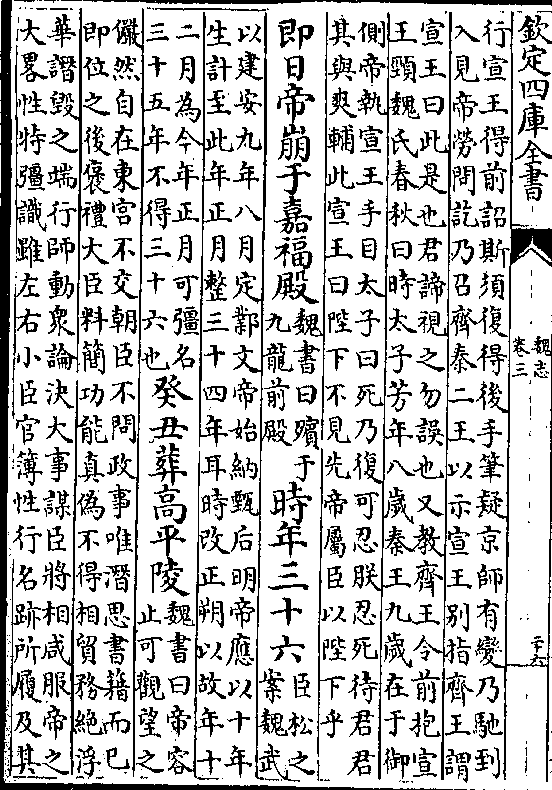 欽定四庫全書
魏志
卷三
二十六
行宣王得前詔斯須復得後手筆疑京師有變乃馳到
入見帝勞問訖乃召齊秦二王以示宣王别指齊王謂
宣王曰此是也君諦視之勿誤也又教齊王令前抱宣
王頸魏氏春秋曰時太子芳年八歲秦王九歲在于御
側帝執宣王手目太子曰死乃復可忍朕忍死待君君
其與爽輔此宣王曰陛下不見先帝屬臣以陛下乎
即日帝崩于嘉福殿魏書曰殯于九龍前殿時年三十六臣松之案魏武
以建安九年八月定鄴文帝始納甄后明帝應以十年
生計至此年正月整三十四年耳時改正朔以故年十
二月為今年正月可彊名三十五年不得三十六也癸丑葬高平陵魏書曰帝容止可觀望之
儼然自在東宫不交朝臣不問政事唯潛思書籍而已
即位之後褒禮大臣料簡功能真偽不得相貿務絶浮
華譖毁之端行師動衆論決大事謀臣將相咸服帝之
大畧性特彊識雖左右小臣官簿性行名跡所履及其